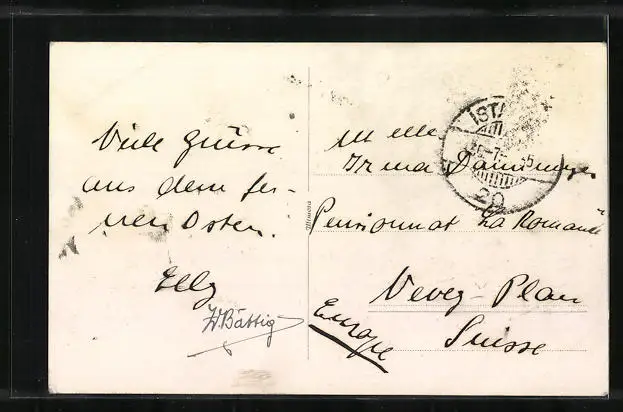 Viele Grüsse
aus dem fer-
nen Osten.
Elly
W. Bättig
Mlle.
Irma
Pensionnat "La Romande"
Vevey-Plan
Suisse
Europe
ISTA
20